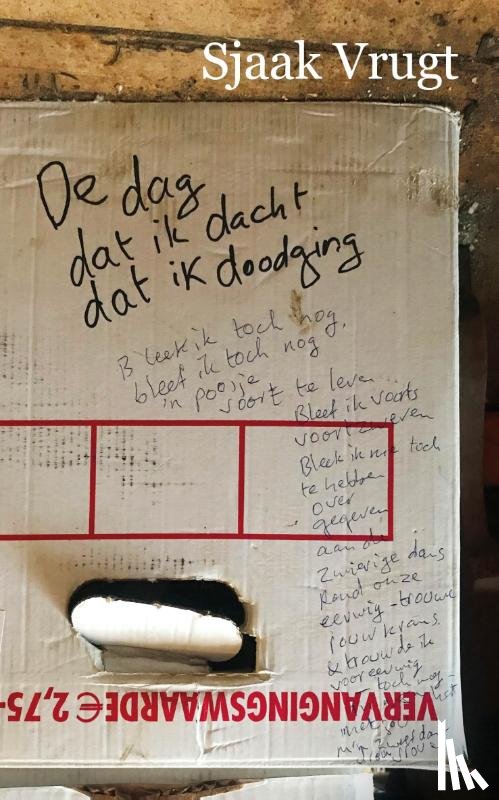 Sjaak Vrugt
De dag
dat ik dacht
dat ik doodging
Bleek ik toch nog,
bleef ik toch nog
'n poosje
voort te leven
Bleef ik voorts
voort zweven
Bleek ik me toch
te hebben
over
gegeven
aan de
zwierige dans
Rond onze
eeuwig-trouwe
rouwkrans
& trouwde ik
voor eeuwig
toch nog
met
m'n
VERVANGINGSWAARDE € 2,75